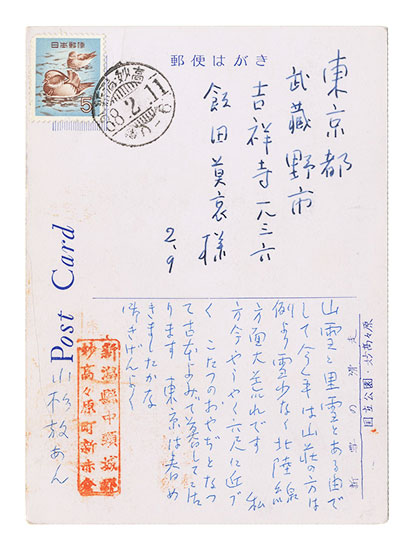 日本郵便
5
郵便はがき
東京都
武蔵野市
吉祥寺一九三六
飯田莫哀様
2.9
Post Card
国立公園・妙高々原
新雪の滑走
山雪と里雪とある由で
して今年は山荘の方は
例より雪少なく北陸線
方面大荒れです 私
方今やうやく六尺に近づ
く こたつのおやぢとなつ
て古本よみて暮して居
ります 東京は春め
きましたかな
御きげんよく
新潟縣中頸城郡
妙高々原町新赤倉
小杉放あん